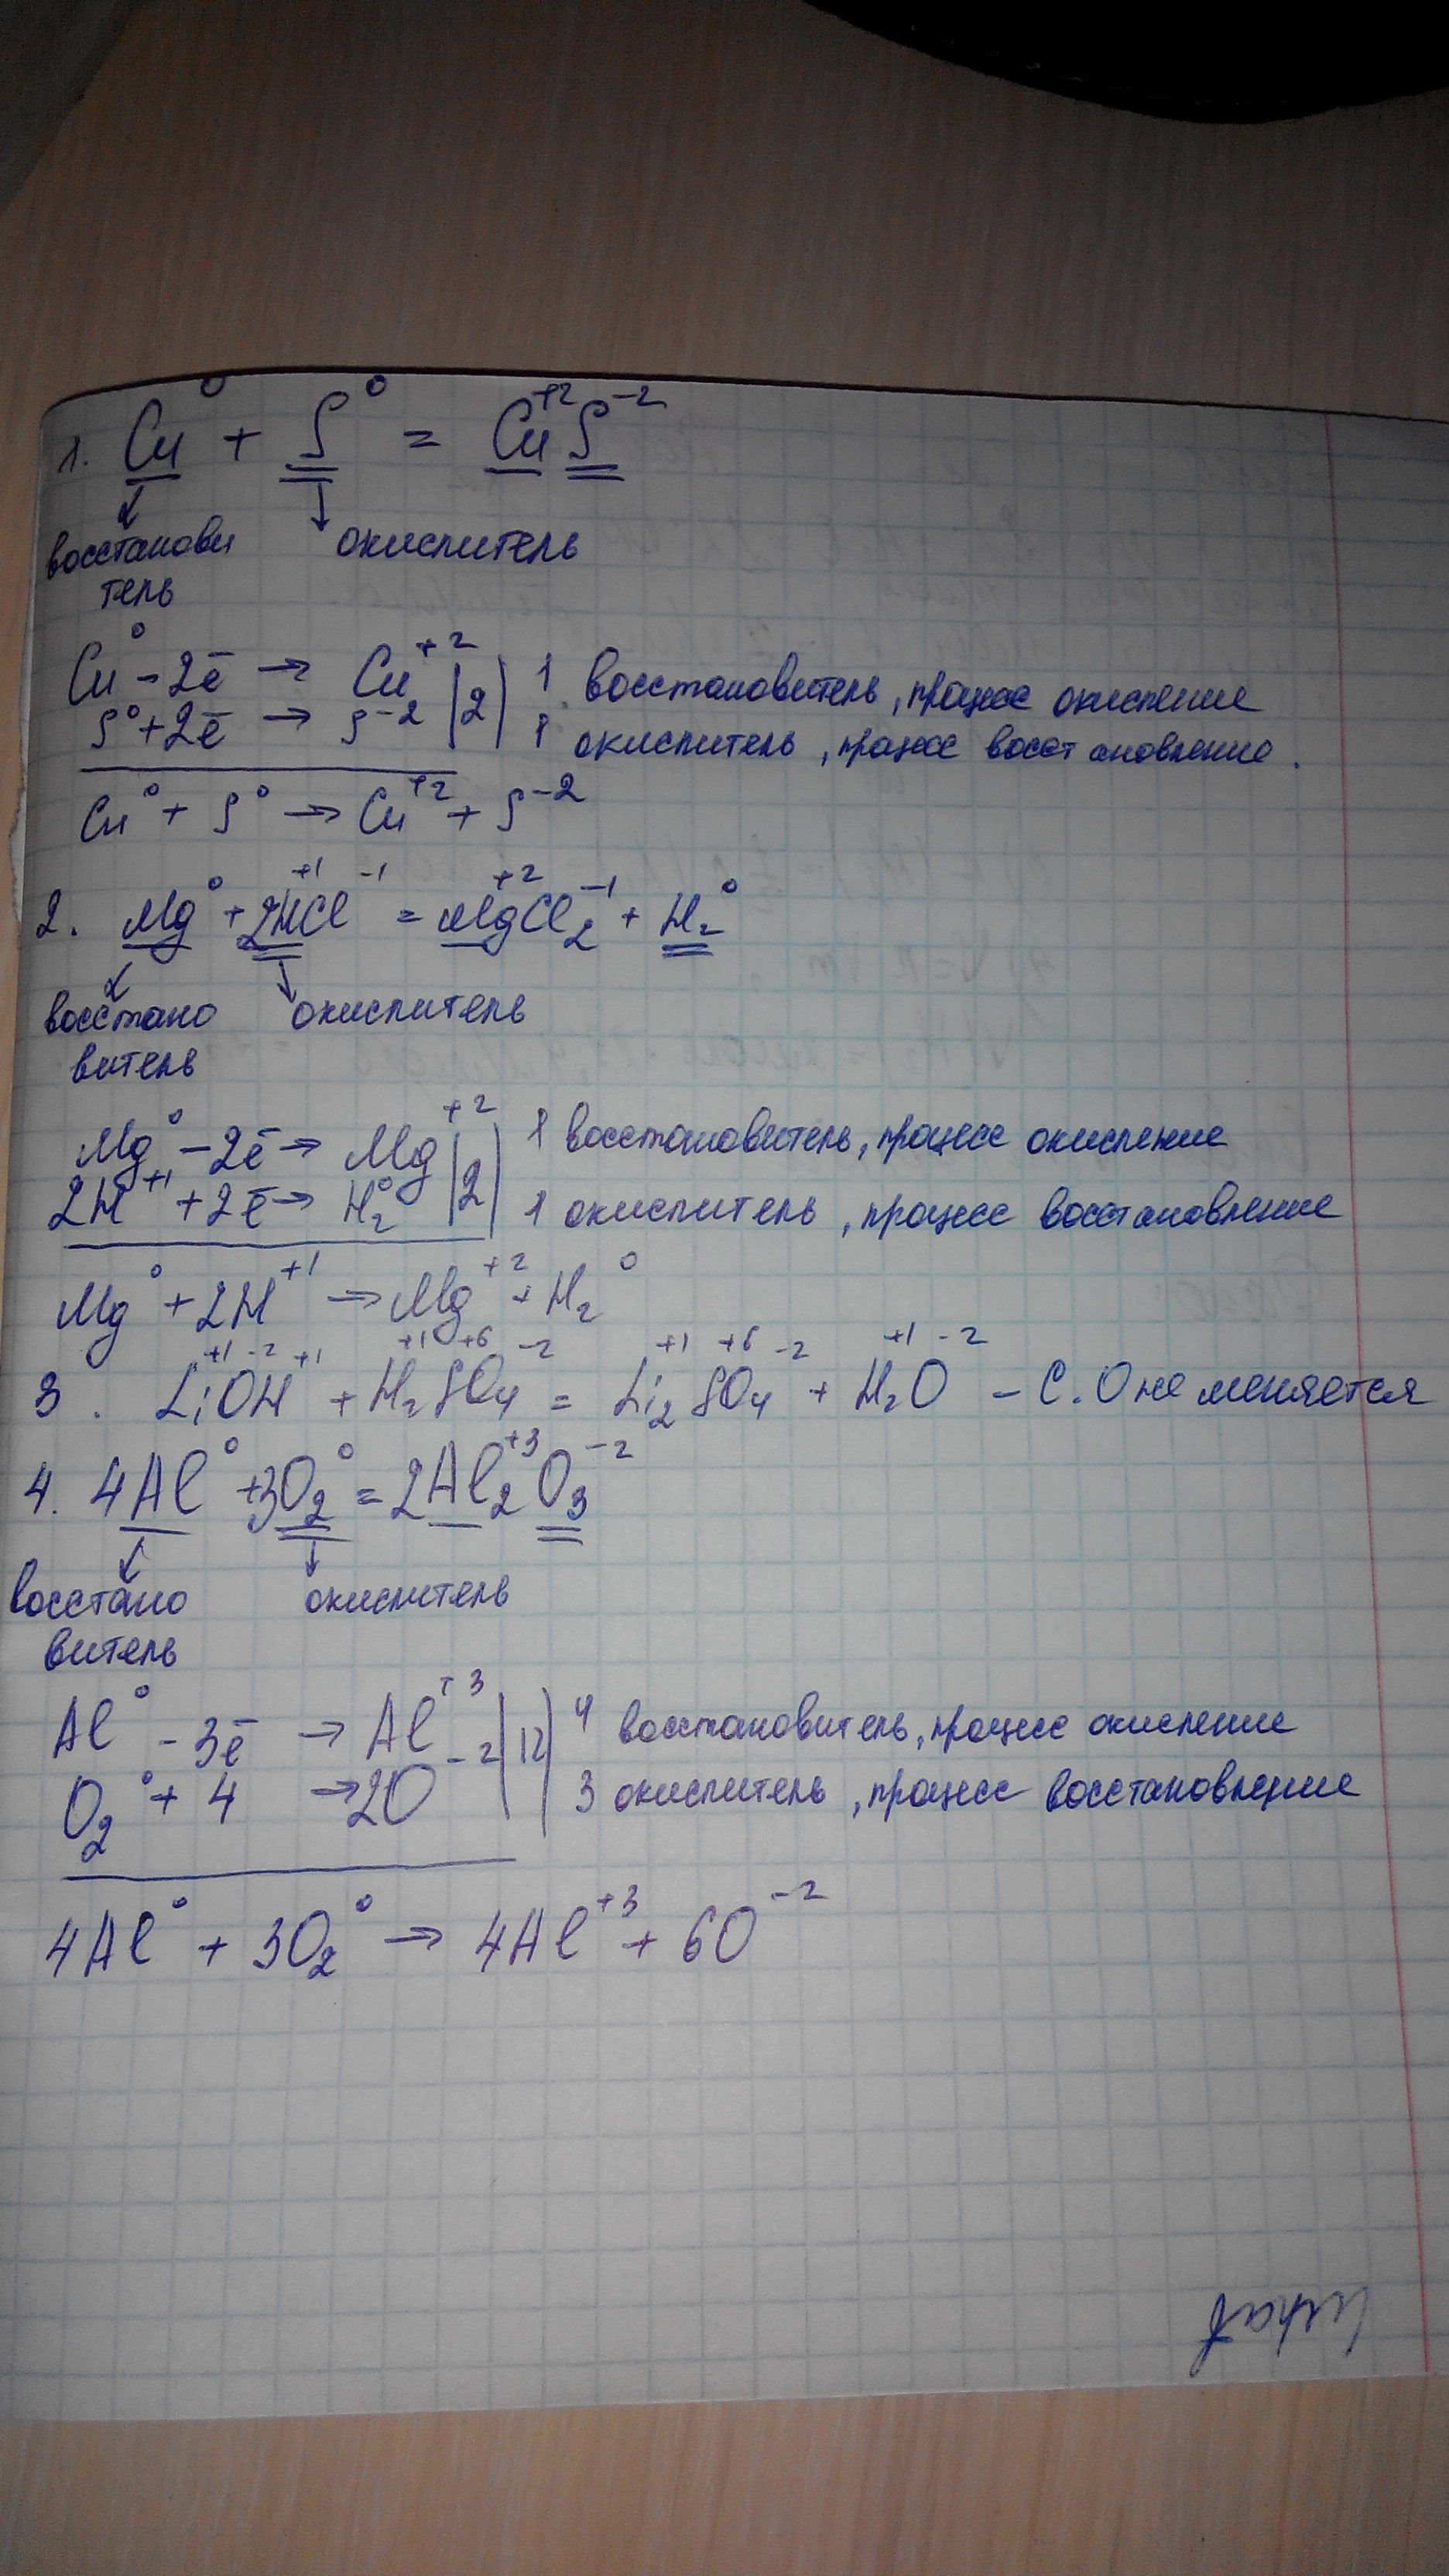 1. Cu⁰ + S⁰ = Cu⁺²S⁻²
восстанови окислитель
тель
Cu⁰ - 2ē → Cu⁺² | 2 | 1 восстановитель, процесс окисление
S⁰ + 2ē → S⁻² | 1 окислитель, процесс восстановление.
Cu⁰ + S⁰ → Cu⁺² + S⁻²
2. Mg⁰ + 2H⁺¹Cl⁻¹ = Mg⁺²Cl₂⁻¹ + H₂⁰
восстано окислитель
витель
Mg⁰ - 2ē → Mg⁺² | 2 | 1 восстановитель, процесс окисление
2H⁺¹ + 2ē → H₂⁰ | 1 окислитель, процесс восстановление
Mg⁰ + 2H⁺¹ → Mg⁺² + H₂⁰
3. Li⁺¹O⁻²H⁺¹ + H₂⁺¹S⁺⁶O₄⁻² = Li₂⁺¹S⁺⁶O₄⁻² + H₂⁺¹O⁻² - С.О не меняется
4. 4Al⁰ + 3O₂⁰ = 2Al₂⁺³O₃⁻²
восстано окислитель
витель
Al⁰ - 3ē → Al⁺³ | 12 | 4 восстановитель, процесс окисление
O₂⁰ + 4 → 2O⁻² | 3 окислитель, процесс восстановление
4Al⁰ + 3O₂⁰ → 4Al⁺³ + 6O⁻²